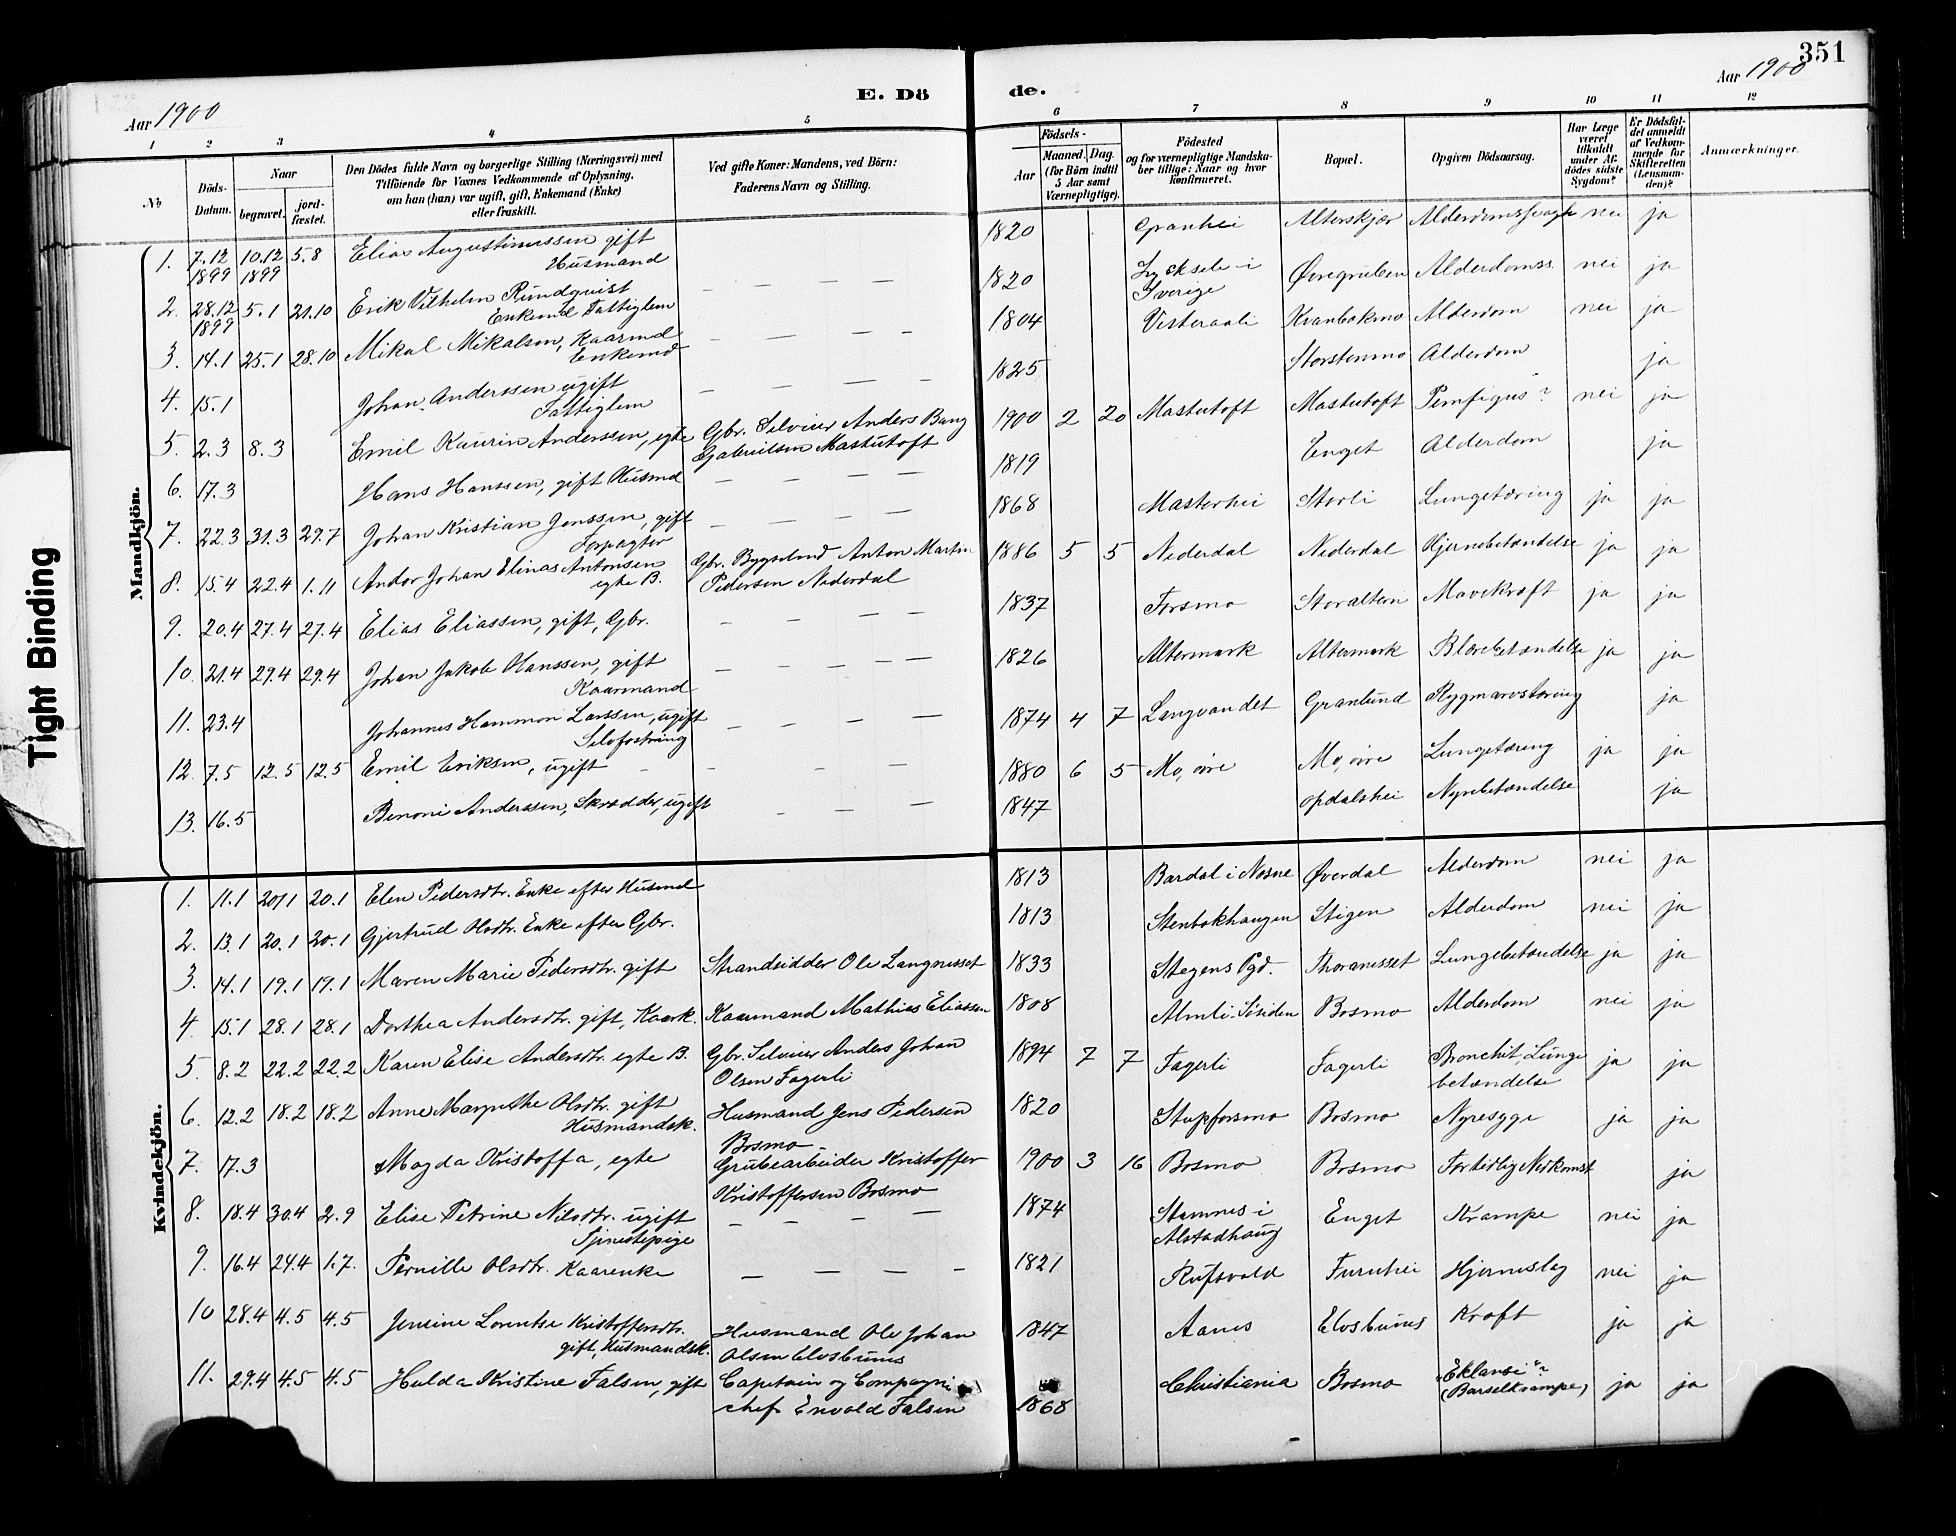 351
Aar 1900
E. Döde.
Aar 1900
1 2 3 4 5 6 7 8 9 10 11 12
№
Döds-Datum.
Naar
begravet.
jord-fæstet.
Den Dödes fulde Navn og borgerlige Stilling (Næringsvei) med
Tilföiende for Voxnes Vedkommende af Oplysning,
om han (hun) var ugift, gift, Enkemand (Enke)
eller fraskilt.
Ved gifte Koner: Mandens, ved Börn:
Faderens Navn og Stilling.
Födsels-
Aar
Maaned. Dag.
(for Börn indtil
5 Aar samt
Værnepligtige).
Födested
og for værnepligtige Mandska-
ber tillige: Naar og hvor
konfirmeret.
Bopæl.
Opgiven Dödsaarsag.
Har Læge
været
tilkaldt
under Af-
dödes sidste
Sygdom?
Er Dödsfal-
det anmeldt
af Vedkom-
mende for
Skifteretten
(Lensman-
den)?
Anmærkninger.
Mandkjön.
1. 7.12 1899 10.12 1899 5.8 Elias Augustinussen gift Husmand 1820 Granhei Alterskjær Alderdomssvagh nei ja
2. 28.12 1899 5.1 21.10 Erik Vilhelm Rundquist Enkemd Fattiglem — — — — 1820 Lycksele i Sverige Øvregruben Alderdomss. nei ja
3. 14.1 25.1 28.10 Mikal Mikalsen, Kaarmd Enkemd — — — — 1804 Vesteraali Kranbokmo Alderdom nei ja
4. 15.1 Johan Anderssen ugift Fattiglem — — — — 1825 Storstenmo Alderdom ja
5. 2.3 8.3 Emil Kaurin Anderssen, egte Gbr. Selveier Anders Bang Gabrielsen Mastutoft 1900 2 20 Mastutoft Mastutoft Pemfigus "? nei ja
6. 17.3 Hans Hanssen, gift Husmd — — — — 1819 Enget Alderdom ja
7. 22.3 31.3 29.7 Johan Kristian Jenssen, gift Forpagter — — — — 1868 Masterhei Storli Lungetæring ja ja
8. 15.4 22.4 1.11 Andor Johan Elinas Antonsen egte B. Gbr. Bygselmd Anton Martin Pedersen Nederdal 1886 5 5 Nederdal Nederdal Hjernebetændelse ja ja
9. 20.4 27.4 27.4 Elias Eliassen, gift, Gbr. — — — — 1837 Forsmo Storaltern Mavekræft ja ja
10. 21.4 29.4 29.4 Johan Jakob Hanssen, gift Kaarmand — — — — — 1826 Altermark Altermark Blærebetændelse ja ja
11. 23.4 Johannes Hammon Larssen, ugift Selvfostring — — — — 1874 4 7 Langvandet Granlund Rygmarvstæring ja
12. 7.5 12.5 12.5 Emil Eriksen, ugift — — — — 1880 6 5 Mo, øvre Mo, øvre Lungetæring ja ja
13. 16.5 Benoni Anderssen, Skrædder, ugift — — — 1847 Opdalshei Nyrebetændelse ja
Kvindekjön.
1. 11.1 20.1 20.1 Elen Pedersdtr. Enke efter Husmd 1813 Bardal i Nesne Øverdal Alderdom nei ja
2. 13.1 20.1 20.1 Gjertrud Olsdtr. Enke efter Gbr. 1813 Stenbokhaugen Stigen Alderdom nei ja
3. 14.1 19.1 19.1 Maren Marie Pedersdtr. gift Strandsidder Ole Langnesset 1833 Stegens Pgd. Thoranesset Lungebetændelse ja ja
4. 15.1 28.1 28.1 Dorthea Andersdtr. gift, Kaark. Kaarmand Mathias Eliassen 1808 Almli-Søsiden Bosmo Alderdom nei ja
5. 8.2 22.2 22.2 Karen Elise Andersdtr. egte B. Gbr. Selveier Anders Johan Olsen Fagerli 1894 7 7 Fagerli Fagerli Bronchit, Lungebetændelse ja ja
6. 12.2 18.2 18.2 Anne Margrethe Olsdtr. gift Husmandsk. Husmand Jens Pedersen Bosmo 1820 Stupforsmo Bosmo Nyresyge ja ja
7. 17.3 Magda Kristoffa, egte Grubearbeider Kristoffer Kristoffersen Bosmo 1900 3 16 Bosmo Bosmo Fortidlig Nedkomst ja
8. 18.4 30.4 2.9 Elise Petrine Nilsdtr. ugift Tjenestepige — — — — 1874 Stamnes i Alstadhaug Enget Krampe nei ja
9. 16.4 24.4 1.7. Pernille Olsdtr. Kaarenke — — — — 1821 Rufsvold Furuhei Hjerneslag nei ja
10 28.4 4.5 4.5 Jensine Lorentse Kristoffersdtr. gift, Husmandsk. Husmand Ole Johan Olsen Elvsbunes 1847 Aanes Elvsbunes Kræft ja ja
11. 29.4 4.5 4.5 Hulda Kristine Falsen, gift Capetain og Compagni chef Envold Falsen 1868 Christiania Bosmo Eklansi "? (Barselkrampe) ja ja
Tight Binding